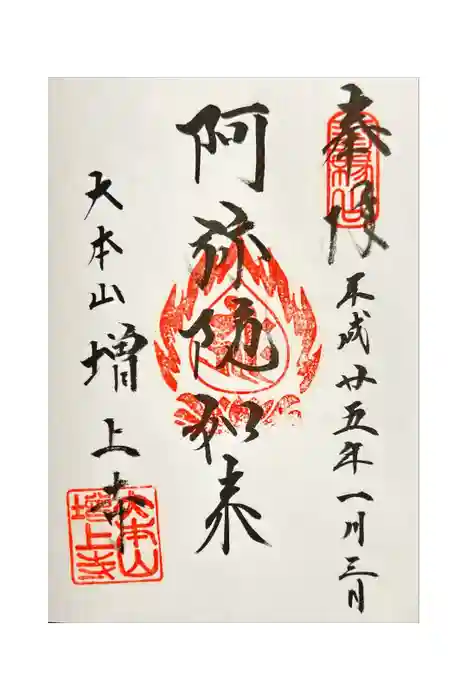 奉拝
平成廿五年一月三日
阿弥陀如来
大本山増上寺
大本山
増上寺